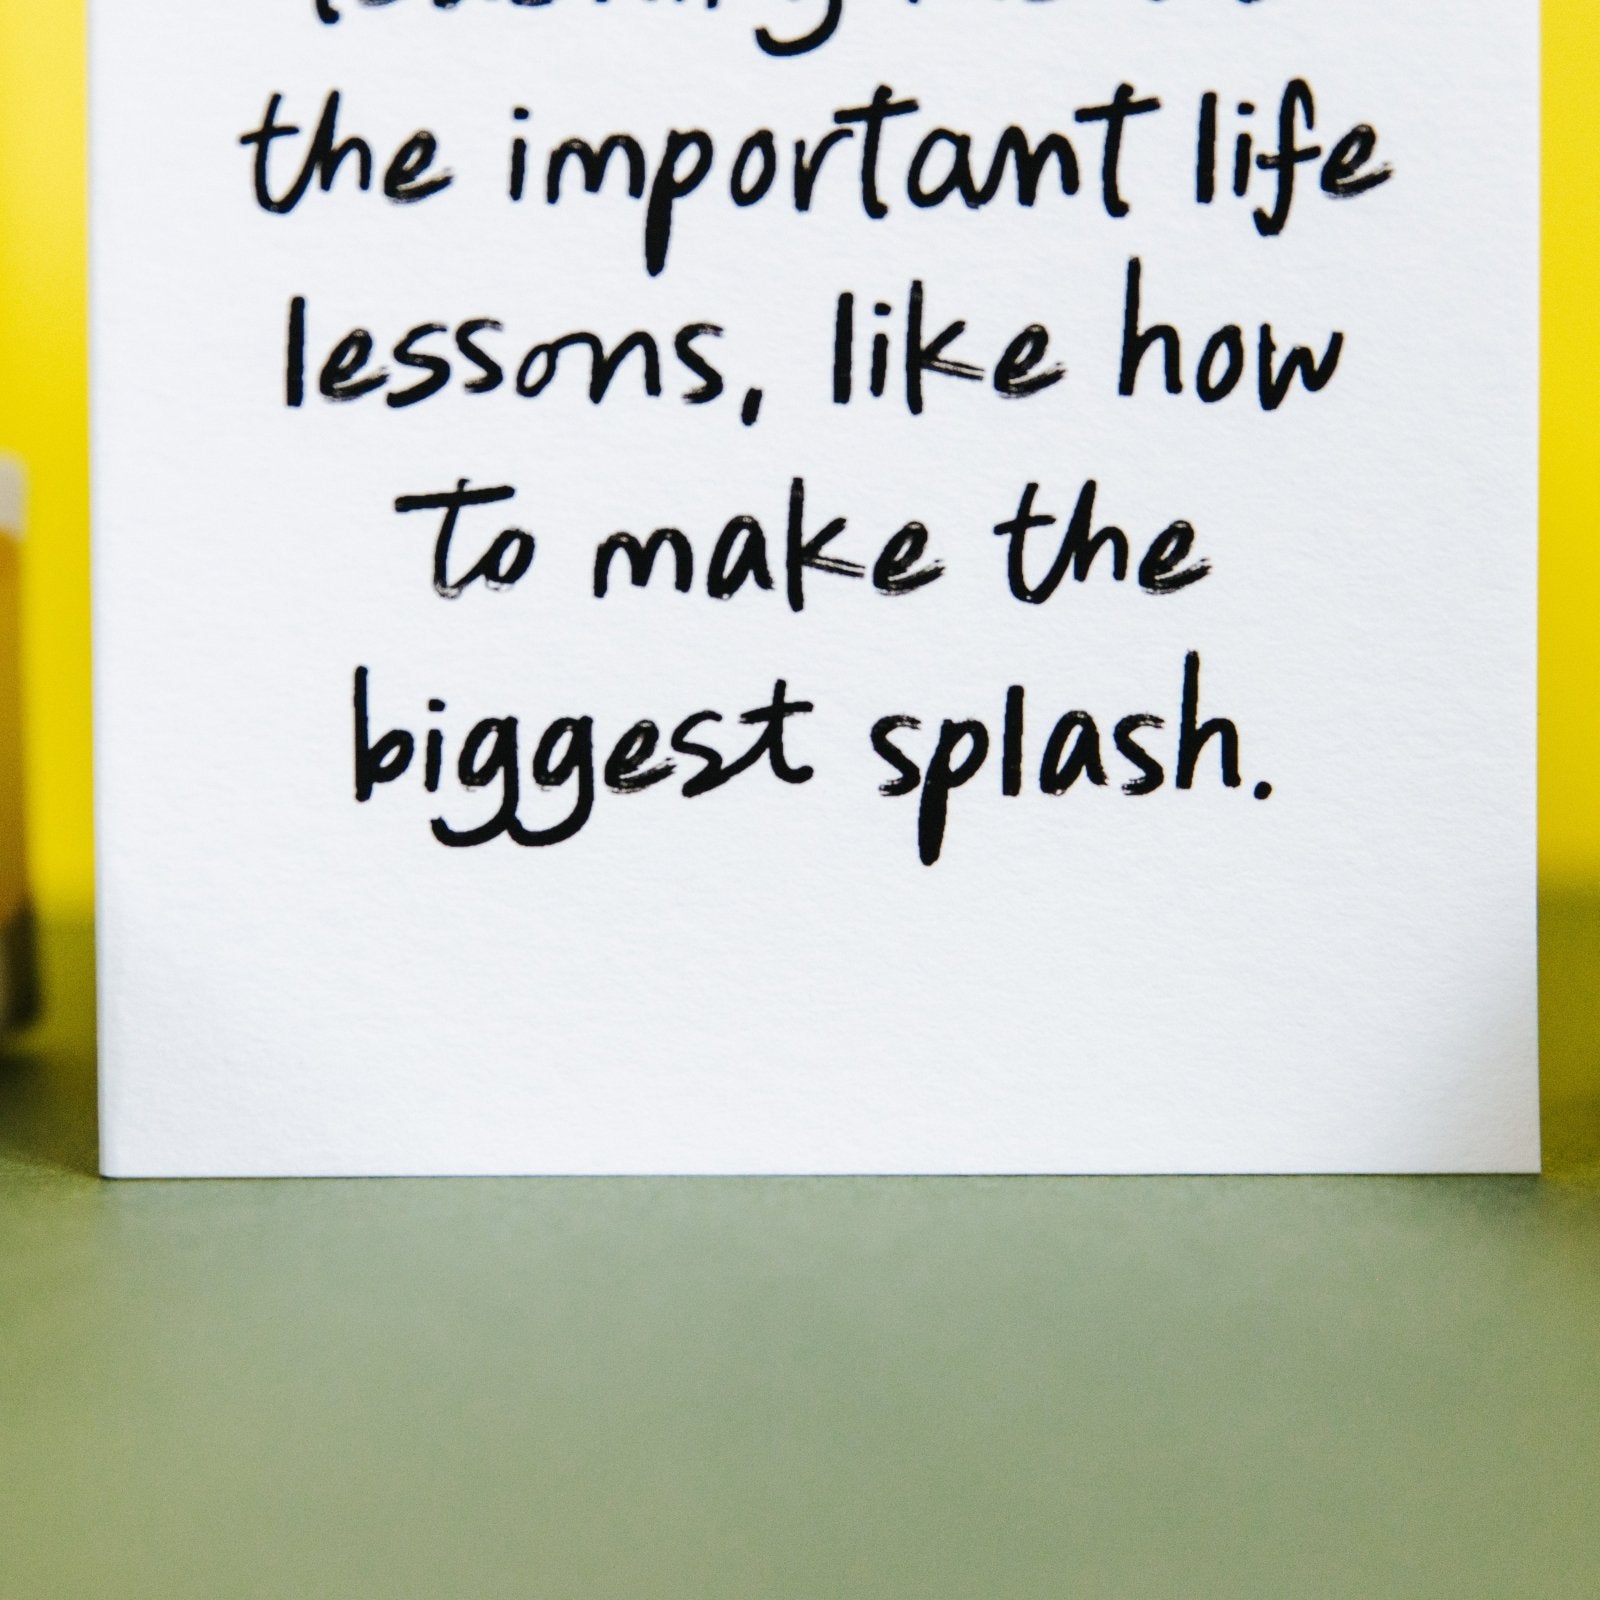 the important life
lessons, like how
to make the
biggest splash.